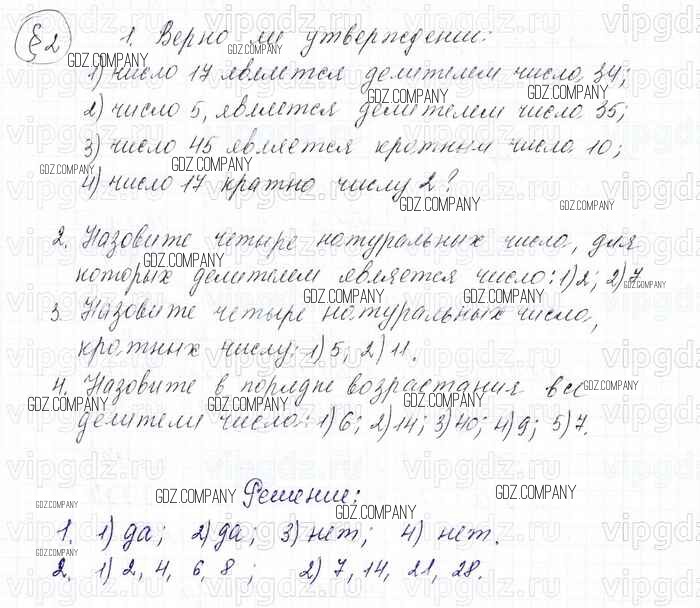 §2
1. Верно ли утверждении:
1) число 17 является делителем числа 34;
2) число 5, является делителем числа 35;
3) число 45 является кратным числа 10;
4) число 17 кратно числу 2?
2. Назовите четыре натуральных числа, для
которых делителем является число: 1) 2; 2) 7
3. Назовите четыре натуральных числа,
кратных числу: 1) 5; 2) 11.
4. Назовите в порядке возрастания все
делители числа: 1) 6; 2) 14; 3) 40; 4) 9; 5) 7.
Решение:
1. 1) да; 2) да; 3) нет; 4) нет.
2. 1) 2, 4, 6, 8; 2) 7, 14, 21, 28.